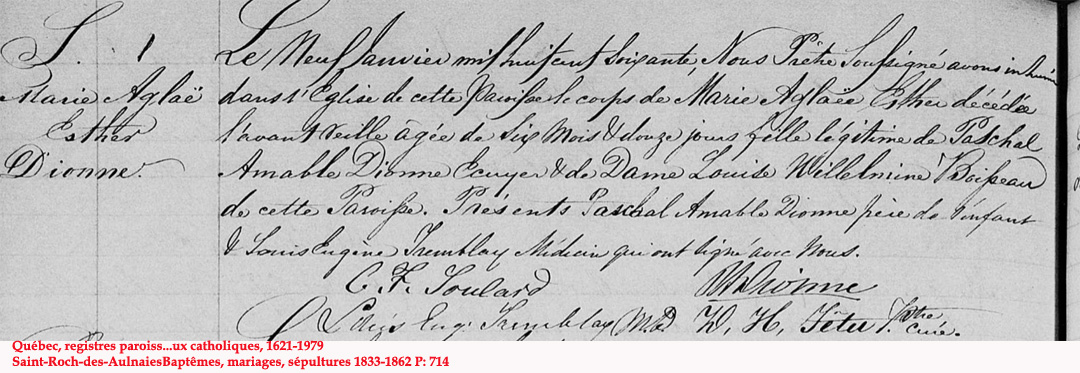 S. 1
Marie Aglaë
Esther
Dionne.
Le Neuf Janvier mil huit cent soixante, Nous Prêtre Soussigné avons inhumé
dans l'Eglise de cette Paroisse le corps de Marie Aglaëe Esther décédée
l'avant veille âgée de Six Mois & douze jours fille légitime de Paschal
Amable Dionne Ecuyer & de Dame Louise Willelmine Boisseau
de cette Paroisse. Présents Paschal Amable Dionne père de l'enfant
& Louis Eugène Tremblay Médecin qui ont signé avec Nous.
C. F. Soulard Dionne
Louis Eug. Tremblay M.D. D. H. Têtu Ptre
curé.
Québec, registres paroiss...ux catholiques, 1621-1979
Saint-Roch-des-AulnaiesBaptêmes, mariages, sépultures 1833-1862 P: 714